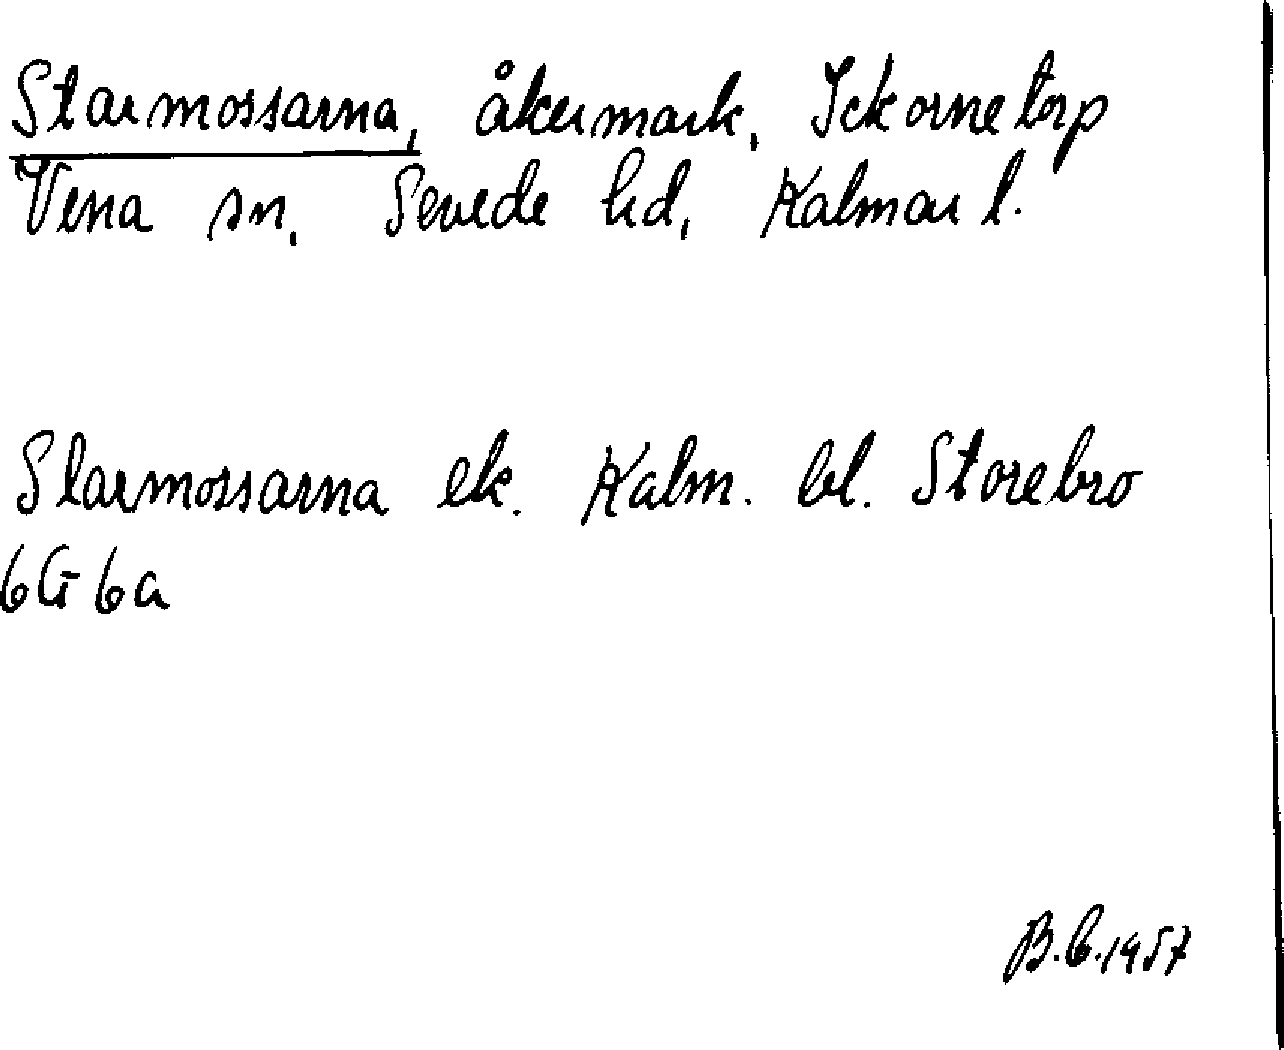 Starmossarna, åkermark, Ickornetorp
Vena sn, Sevede hd, Kalmar l.
Slarmossarna ek. Kalm. bl. Storebro
6G 6a
B.C. 1957